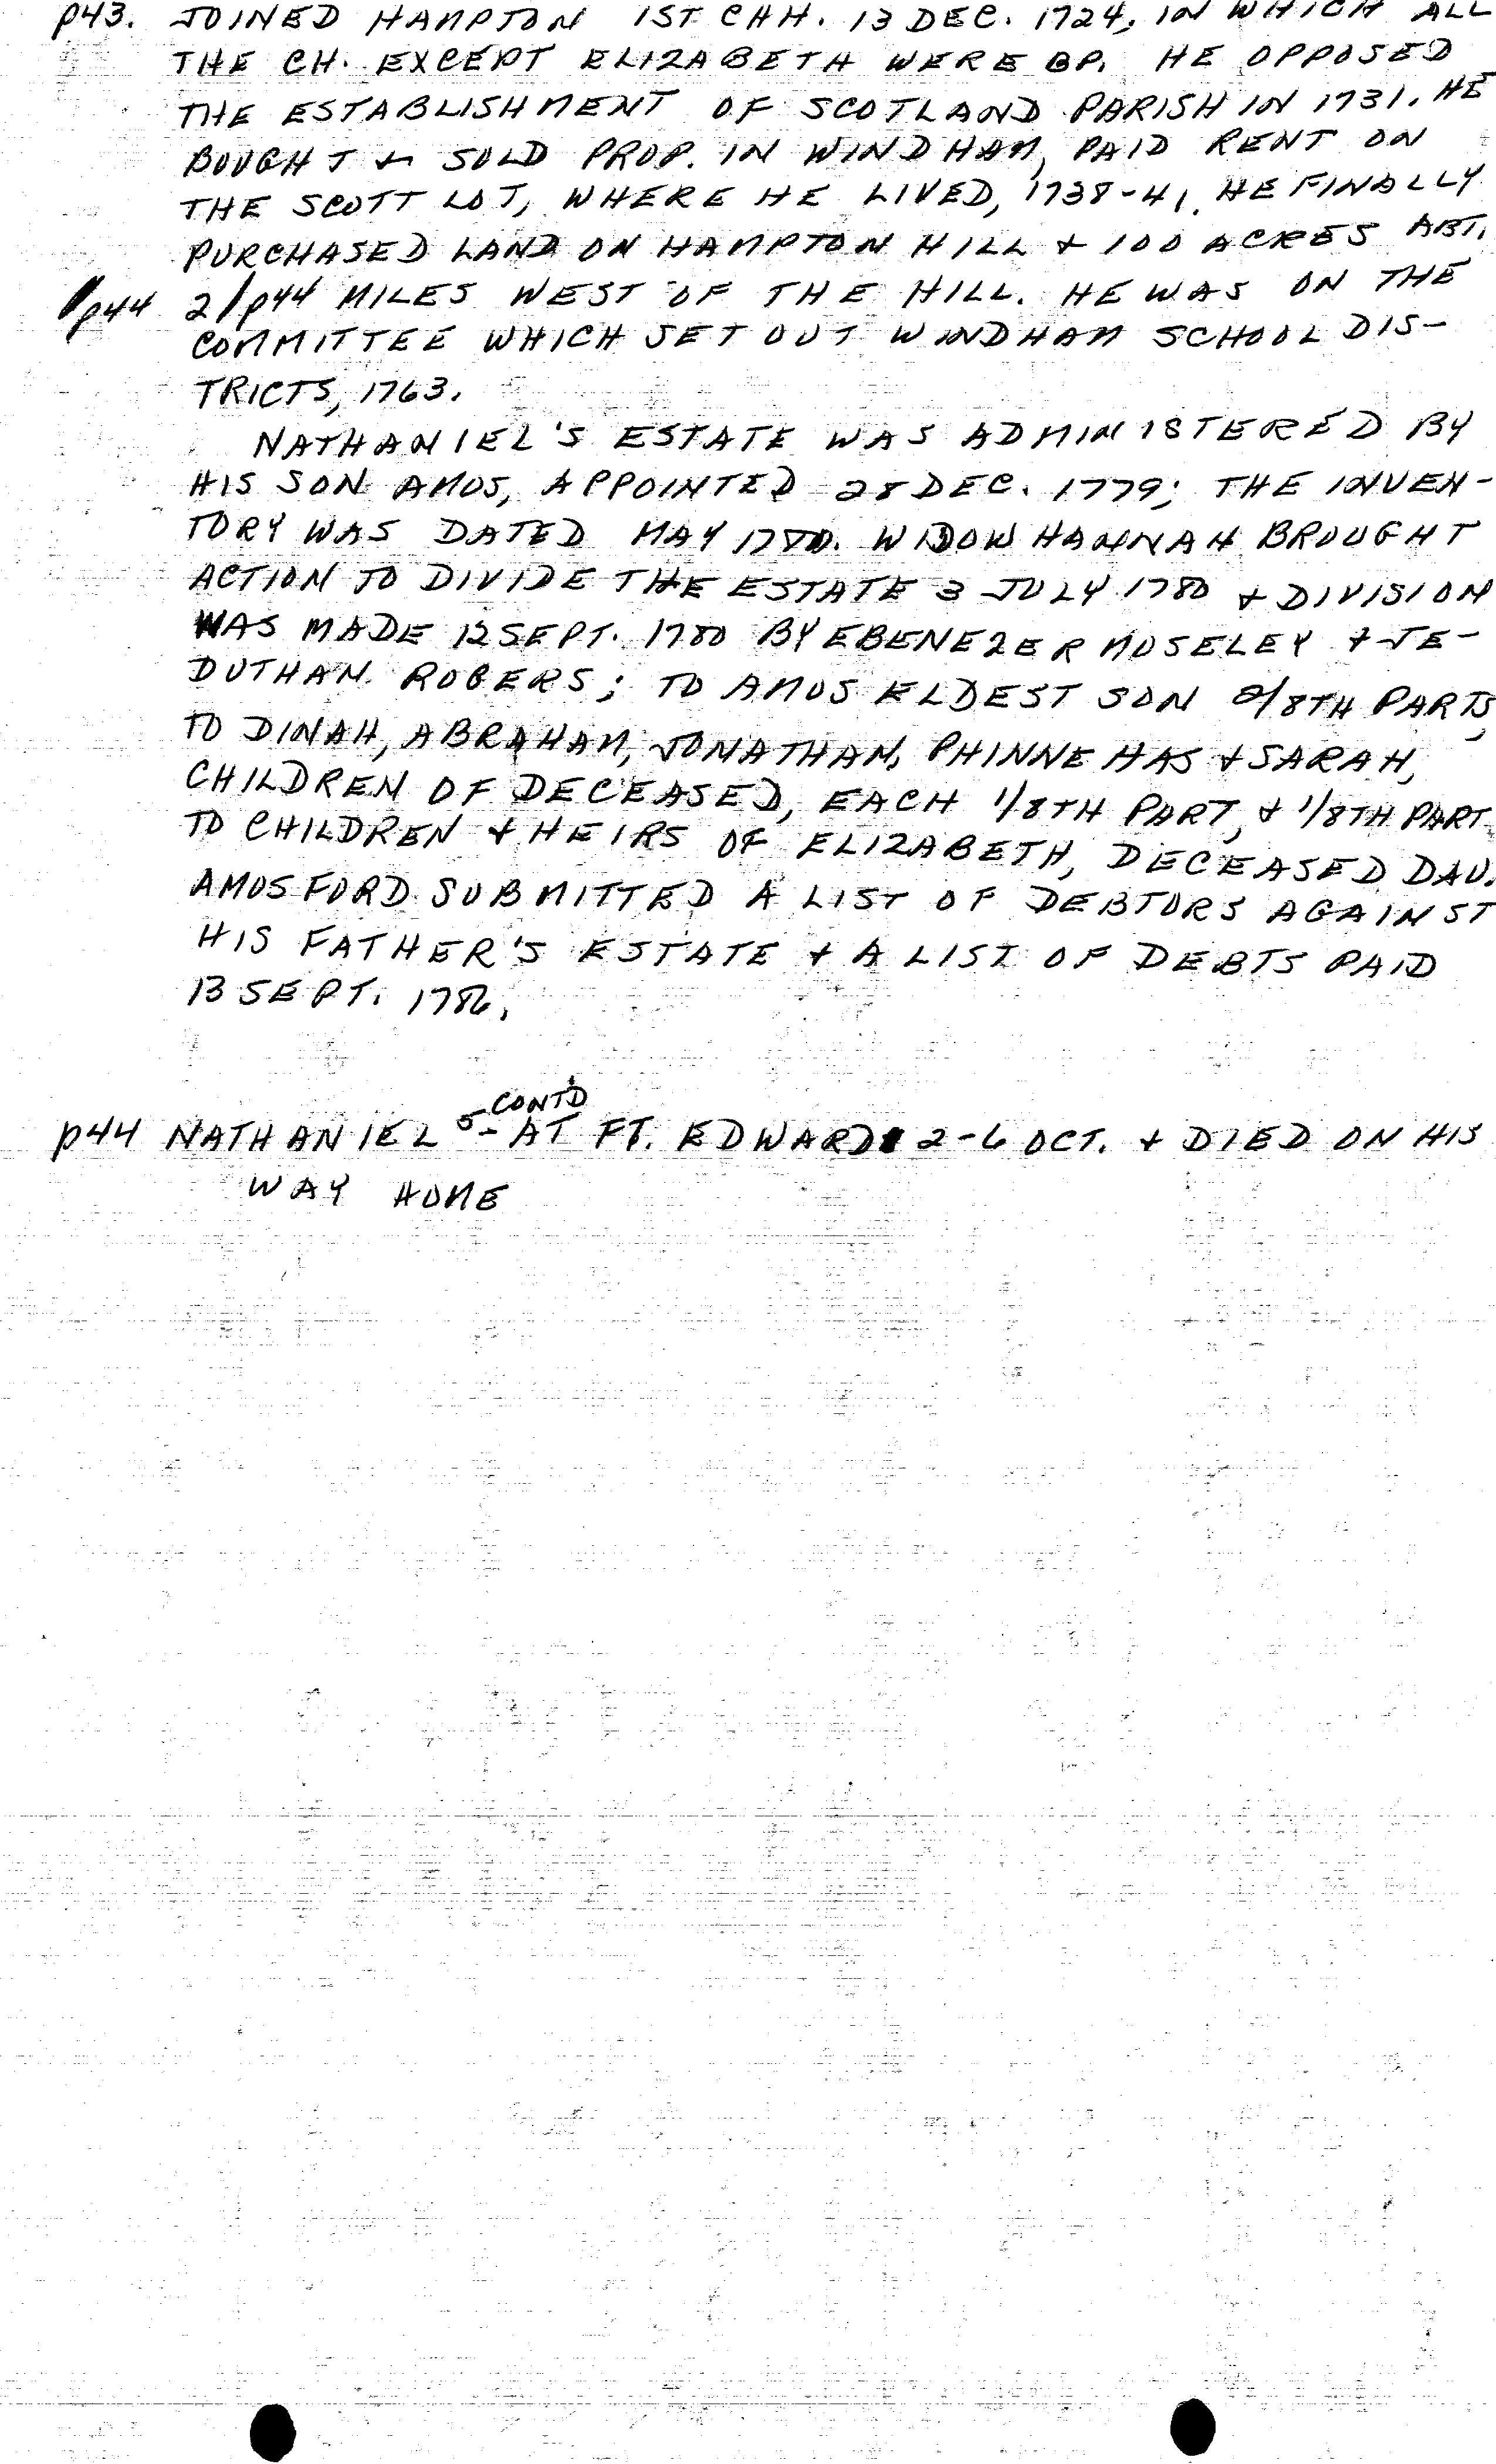 p43. JOINED HAMPTON 1ST CHH. 13 DEC. 1724, IN WHICH ALL
THE CH. EXCEPT ELIZABETH WERE BP. HE OPPOSED
THE ESTABLISHMENT OF SCOTLAND PARISH IN 1731. HE
BOUGHT & SOLD PROP. IN WINDHAM, PAID RENT ON
THE SCOTT LOT, WHERE HE LIVED, 1738-41. HE FINALLY
PURCHASED LAND ON HAMPTON HILL & 100 ACRES ABT.
p44 2/p44 MILES WEST OF THE HILL. HE WAS ON THE
COMMITTEE WHICH SET OUT WINDHAM SCHOOL DIS-
TRICTS, 1763.
NATHANIEL'S ESTATE WAS ADMINISTERED BY
HIS SON AMOS, APPOINTED 28 DEC. 1779; THE INVEN-
TORY WAS DATED MAY 1780. WIDOW HANNAH BROUGHT
ACTION TO DIVIDE THE ESTATE 3 JULY 1780 & DIVISION
WAS MADE 12 SEPT. 1780 BY EBENEZER MOSELEY & JE-
DUTHAN ROGERS; TO AMOS ELDEST SON 2/8TH PARTS,
TO DINAH, ABRAHAM, JONATHAN, PHINNEHAS & SARAH,
CHILDREN OF DECEASED, EACH 1/8TH PART, & 1/8TH PART
TO CHILDREN & HEIRS OF ELIZABETH, DECEASED DAU.
AMOS FORD SUBMITTED A LIST OF DEBTORS AGAINST
HIS FATHER'S ESTATE & A LIST OF DEBTS PAID
13 SEPT.
CONT'D
p44 NATHANIEL 5- AT FT. EDWARD 2-6 OCT. & DIED ON HIS
WAY HOME